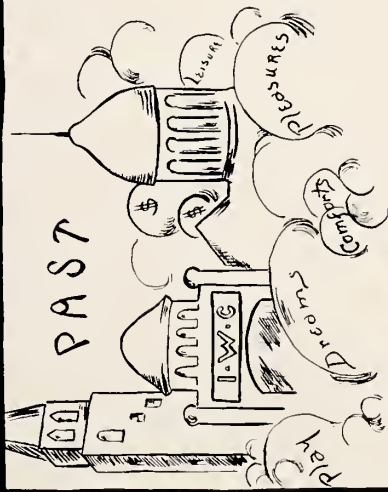 PAST
LEISURE
Pleasures
$
$
Comforts
I·W·C
Dreams
Play